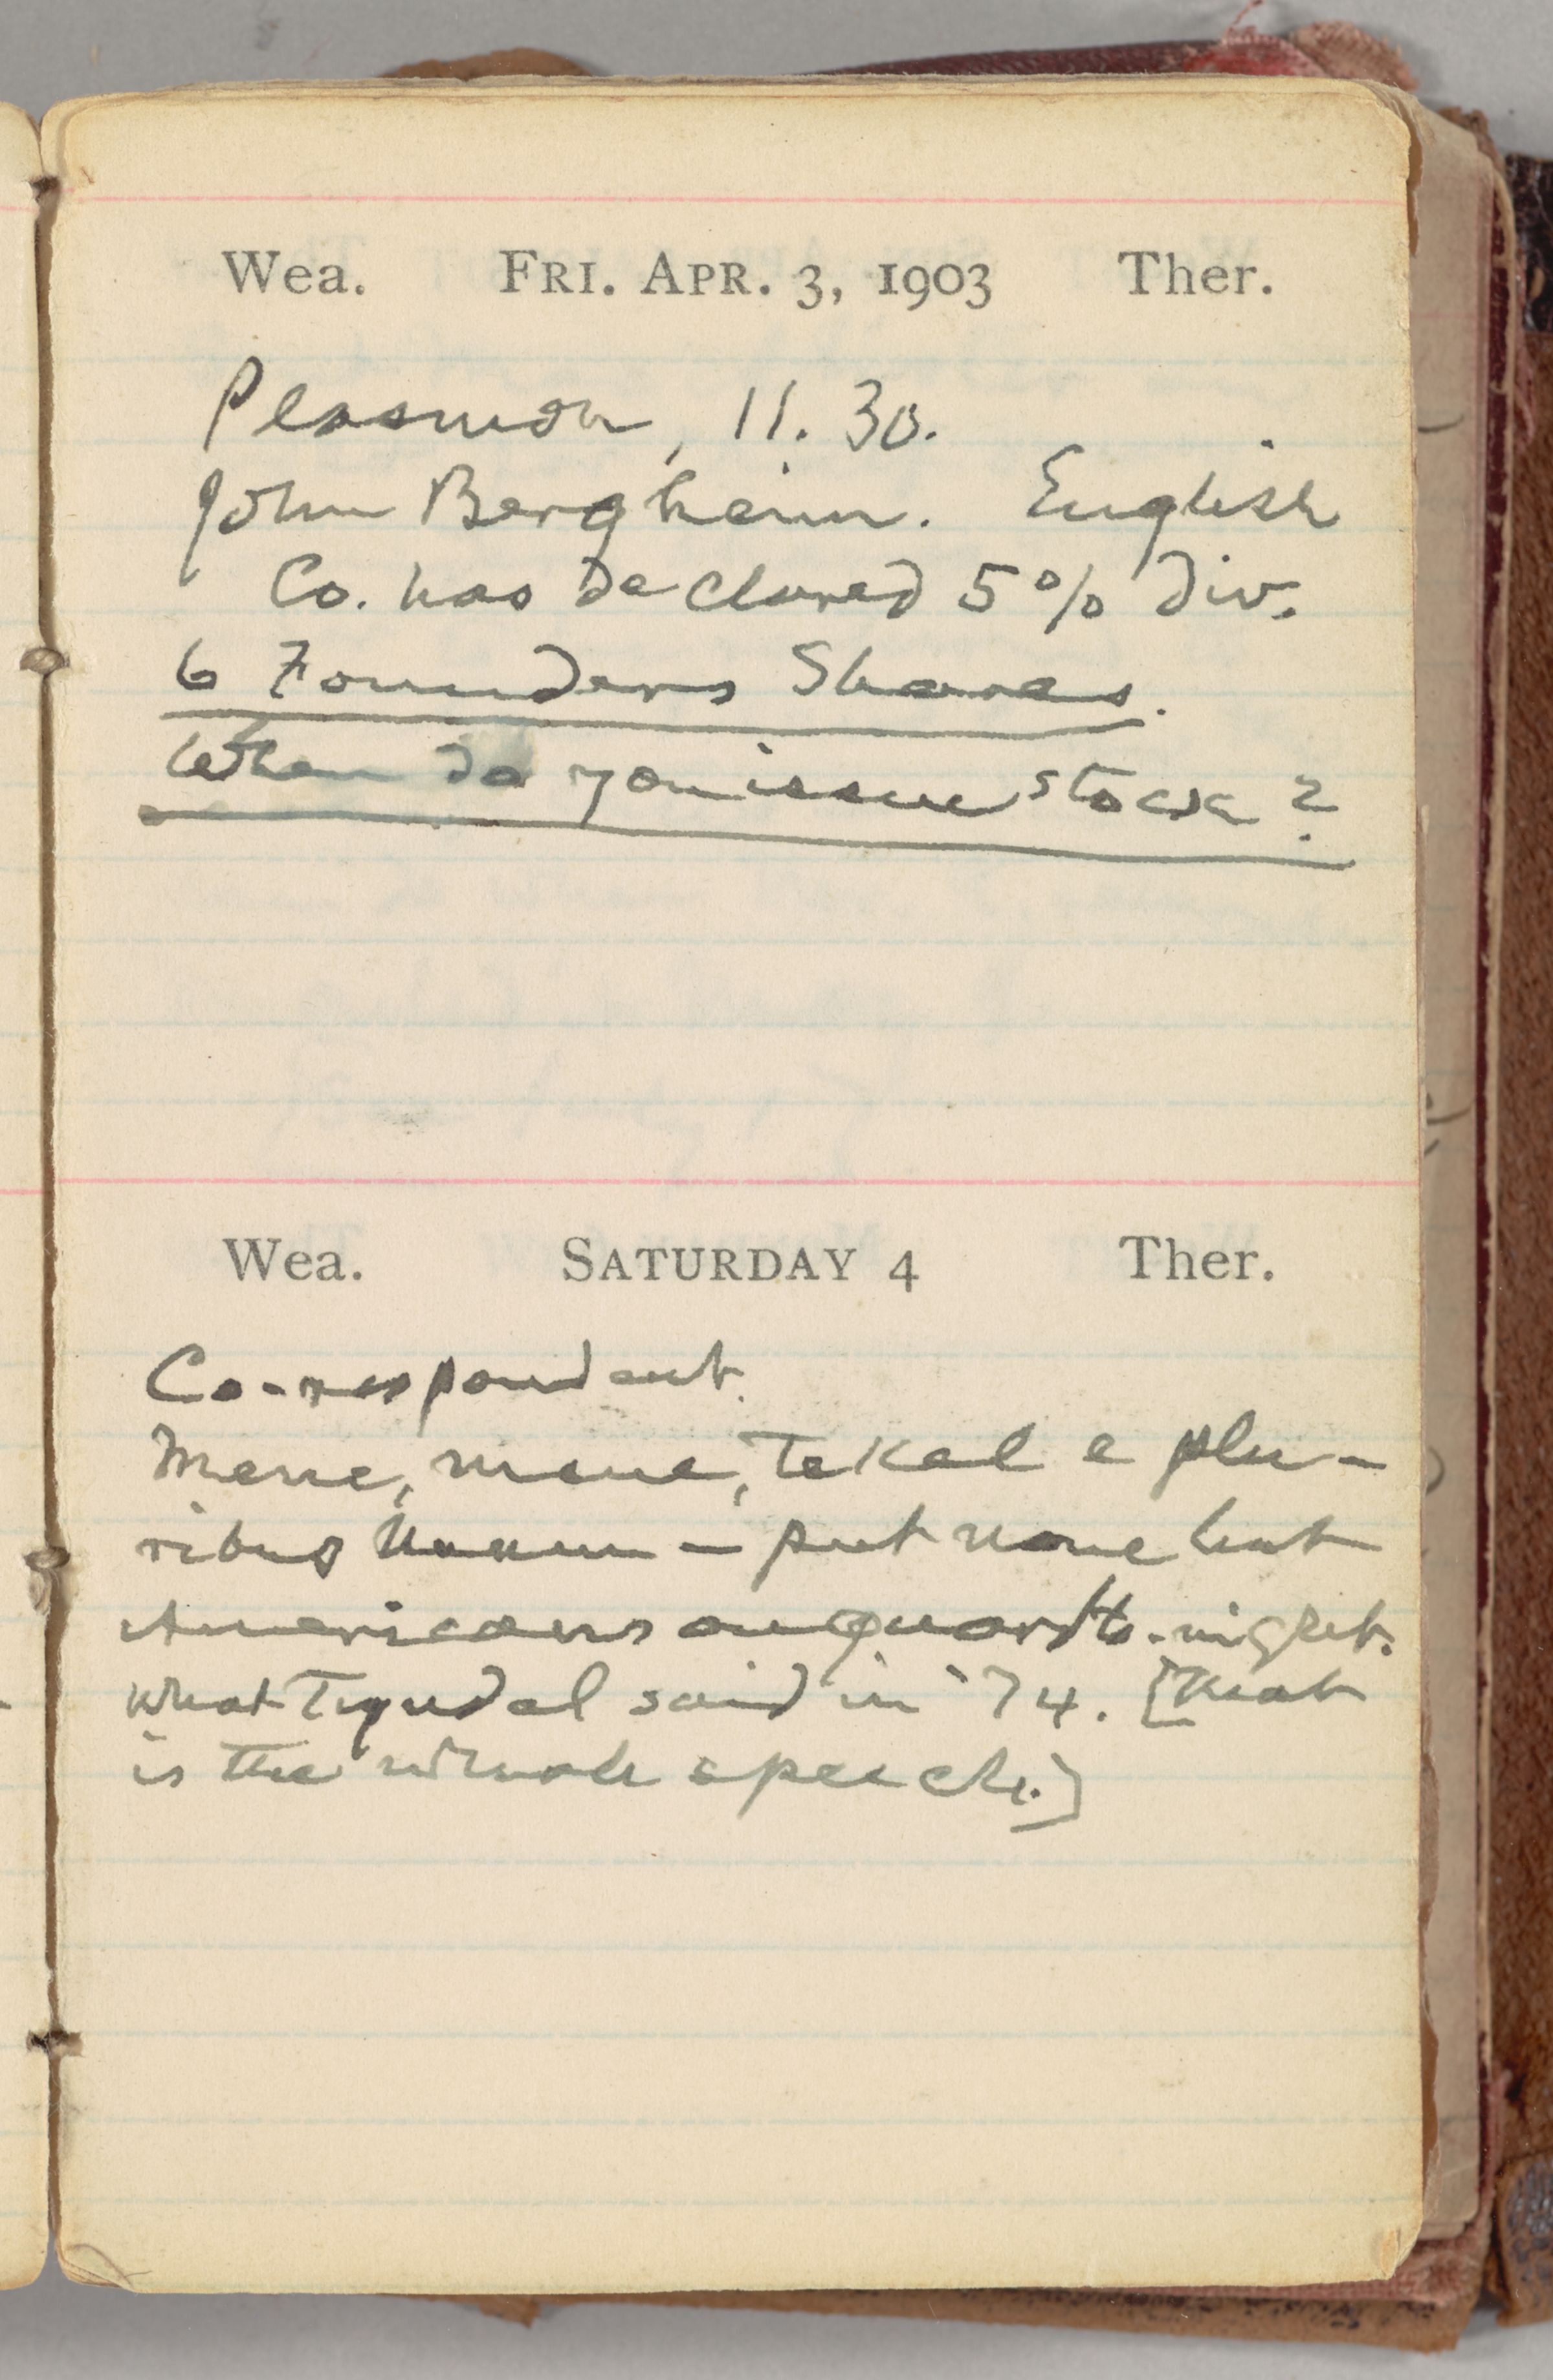 Wea. FRI. APR. 3, 1903 Ther.
Plasmon, 11.30.
John Bergheim. English
Co. has declared 5% div.
6 Founders Shares.
When do you issue stock?
Wea. SATURDAY 4 Ther.
Co-respondent.
Mene, mene, Tekel e plu-
ribus Unum — put none but
Americans on guard to-night.
What Tyndal said in '74. [That
is the whole speech.]